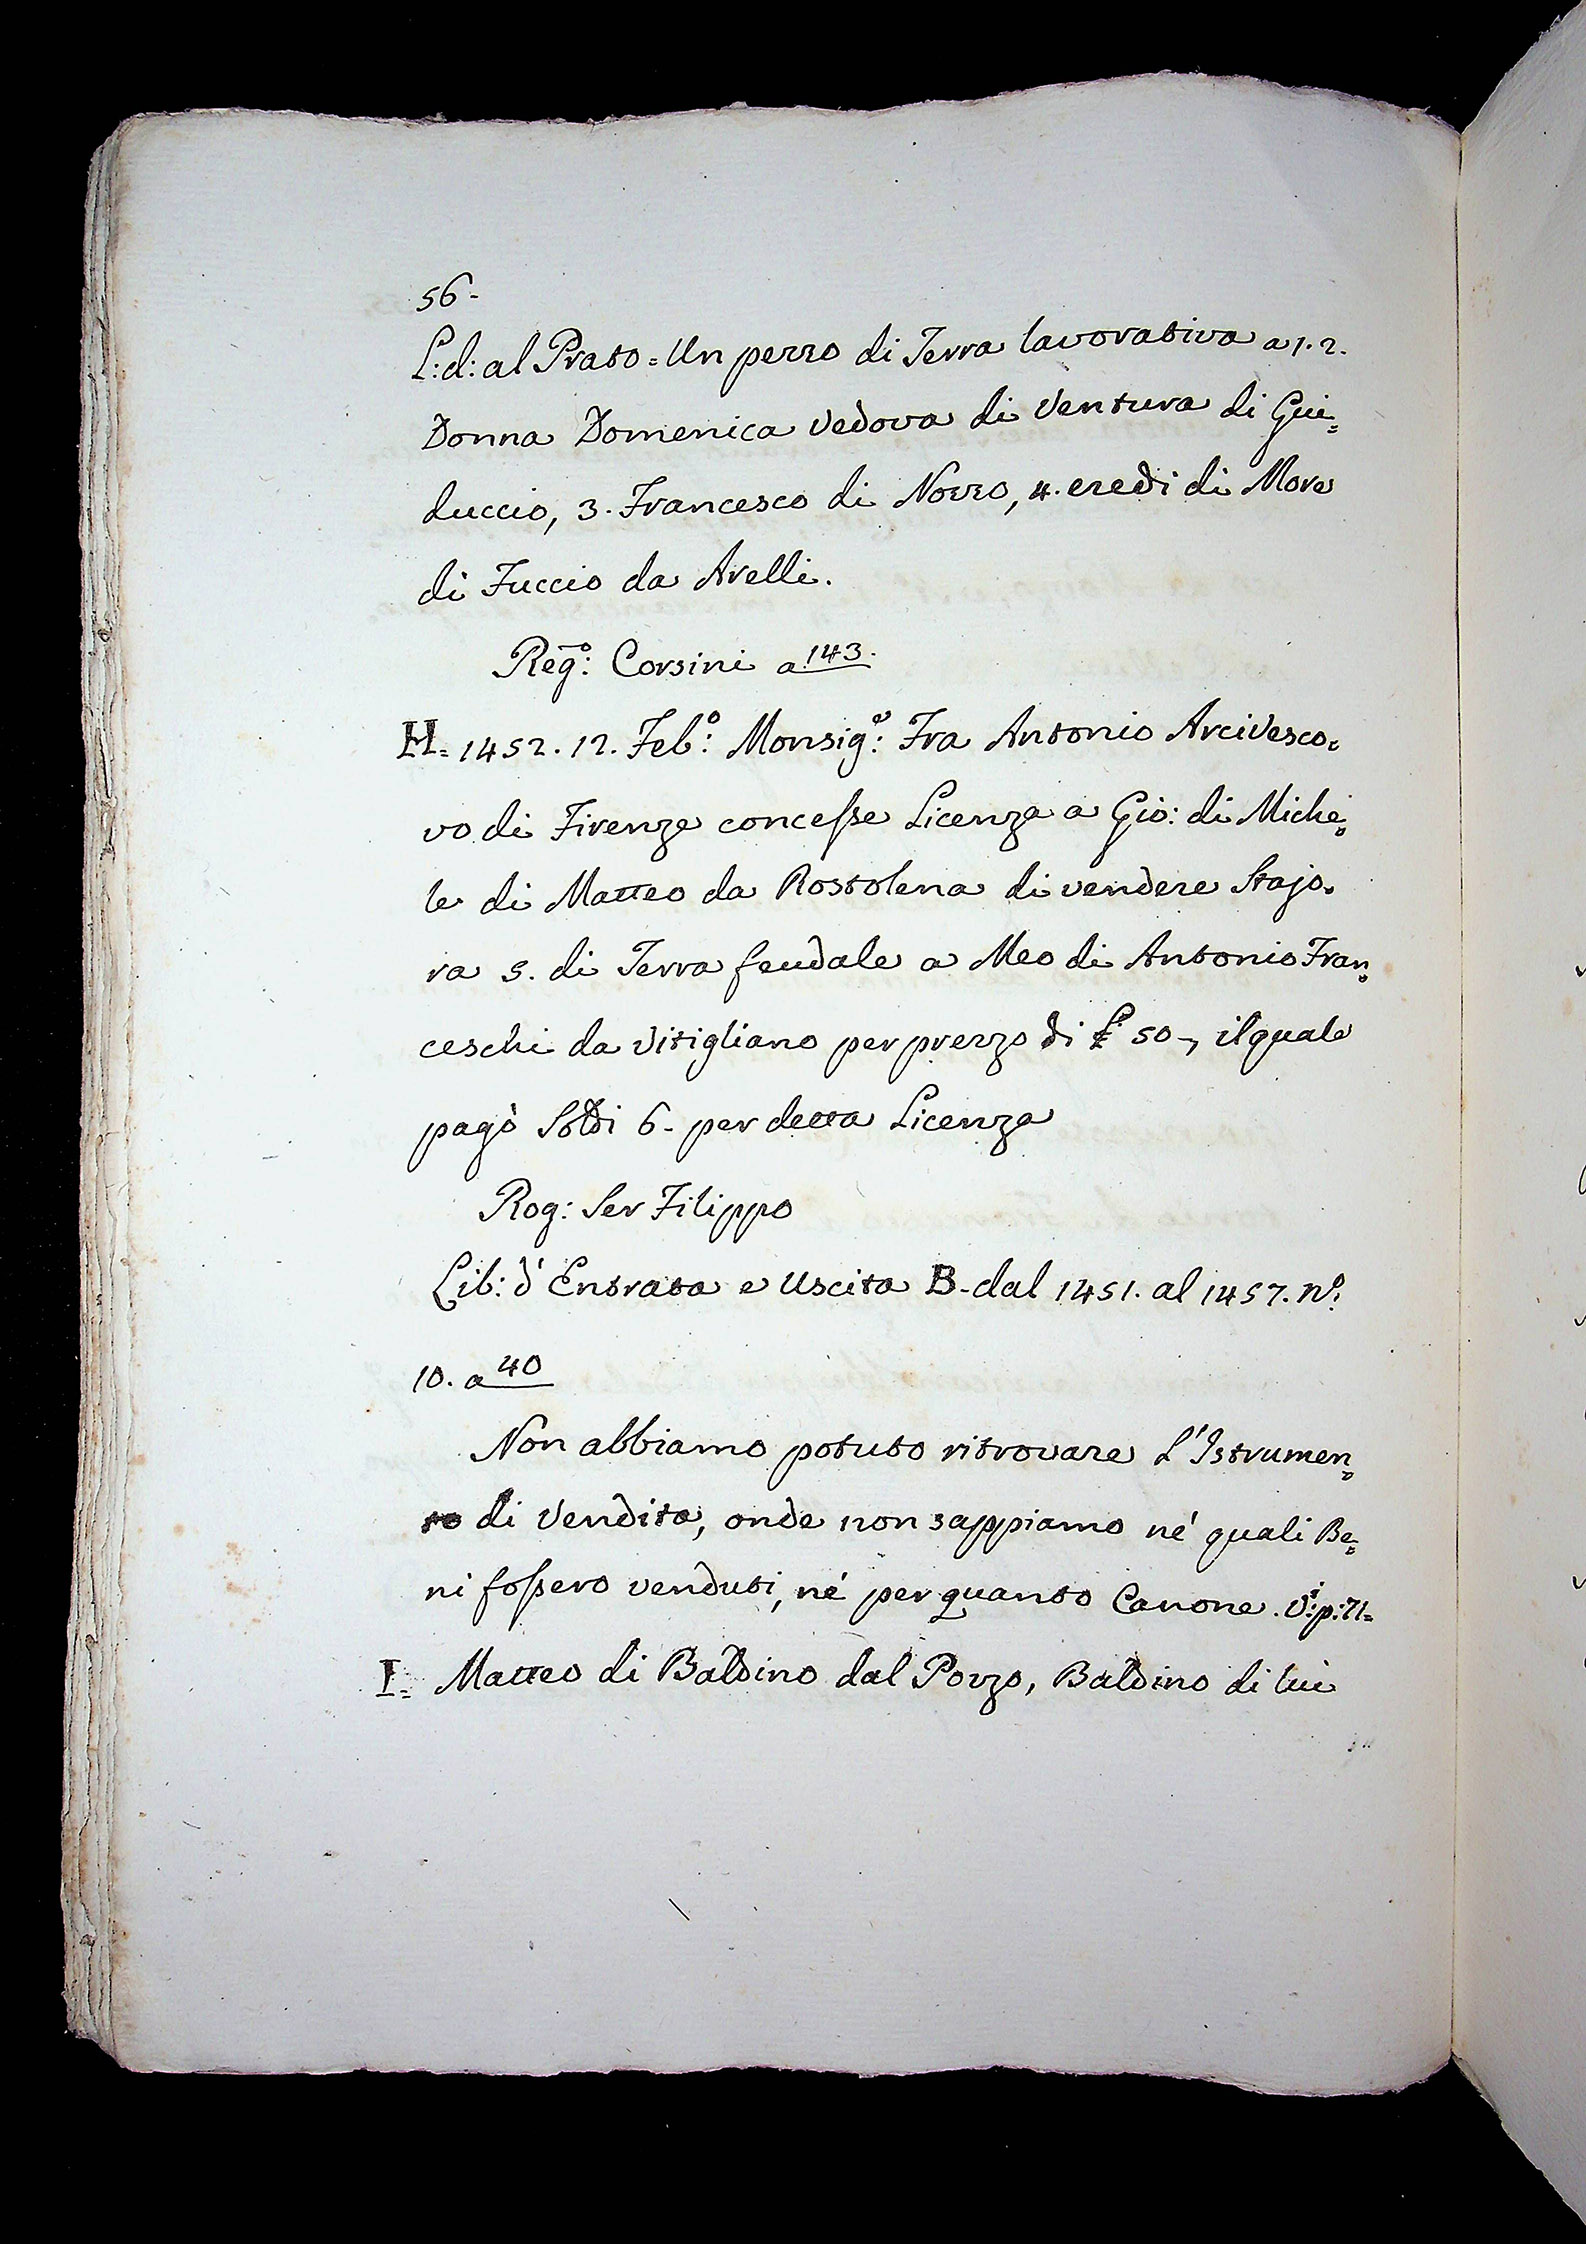 56.
L: d: al Prato = Un pezzo di Terra lavorativa a 1. 2.
Donna Domenica Vedova di Ventura di Gui=
duccio, 3. Francesco di Nozzo, 4. eredi di More
di Fuccio da Avelli.
Reg.º: Corsini a 143.
H= 1452. 12. Feb.º: Monsig.e: Fra Antonio Arcivesco=
vo di Firenze concesse Licenza a Gio: di Miche=
le di Matteo da Rostolena di vendere Stajo=
ra 5. di Terra feudale a Meo di Antonio Fran=
ceschi da Vitigliano per prezzo di £ 50-, il quale
pagò Soldi 6- per detta Licenza
Rog: Ser Filippo
Lib: d' Entrata e Uscita B- dal 1451. al 1457. nº:
10. a 40
Non abbiamo potuto ritrovare L' Istrumen=
to di Vendita, onde non sappiamo né quali Be=
ni fossero venduti, né per quanto Canone. V:i p: 71=
I= Matteo di Baldino dal Pozzo, Baldino di lui